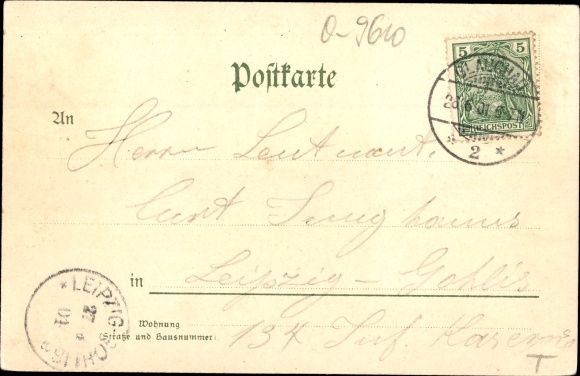 O-9610
Postkarte
5 5
GLAUCHAU
28.6.01
REICHSPOST
* 2 *
An
Herrn Leutnant.
Curt Junghanns
in Leipzig-Gohlis
Wohnung
(Straße und Hausnummer)
134 Inf. Kaserne
* LEIPZIG-GOHLIS *
01
T